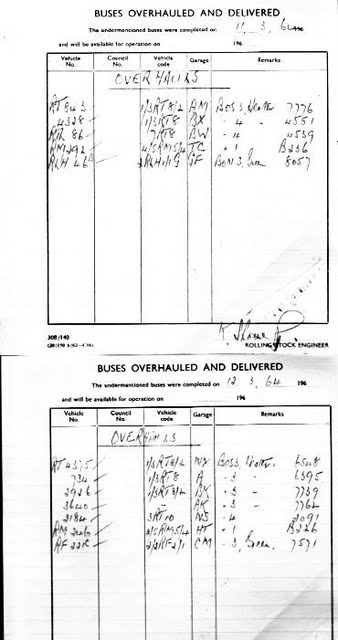 BUSES OVERHAULED AND DELIVERED
The undermentioned buses were completed on 11. 3. 64 196
and will be available for operation on 196
Vehicle No. Council No. Vehicle code Garage Remarks
OVERHAULS
RT 843 1/3RT8/2 HM Bos 3, Heater 7776
4328 1/3RT8 BX " 4 " 4551
RTL 86 7RT8 BW " 4 4539
RM 292 4/5RM5/4 TC " 1 B236
RLH 46 2RLH1/1G GF Bos 3, Green 8057
308/140
ROLLING STOCK ENGINEER
BUSES OVERHAULED AND DELIVERED
The undermentioned buses were completed on 12. 3. 64 196
and will be available for operation on 196
Vehicle No. Council No. Vehicle code Garage Remarks
OVERHAULS
RT 4375 1/3RT8/2 NX Bos 3, Heater 6548
734 1/3RT8 A " 3 " 6395
2926 1/3RT3/2 BK " 3 " 7739
3640 AK " 3 " 7762
2184 3RT10 NS " 4 2091
RM 226 HT " 1 B226
RF 228 2/2RF2/1 CM " 3, Green 7571